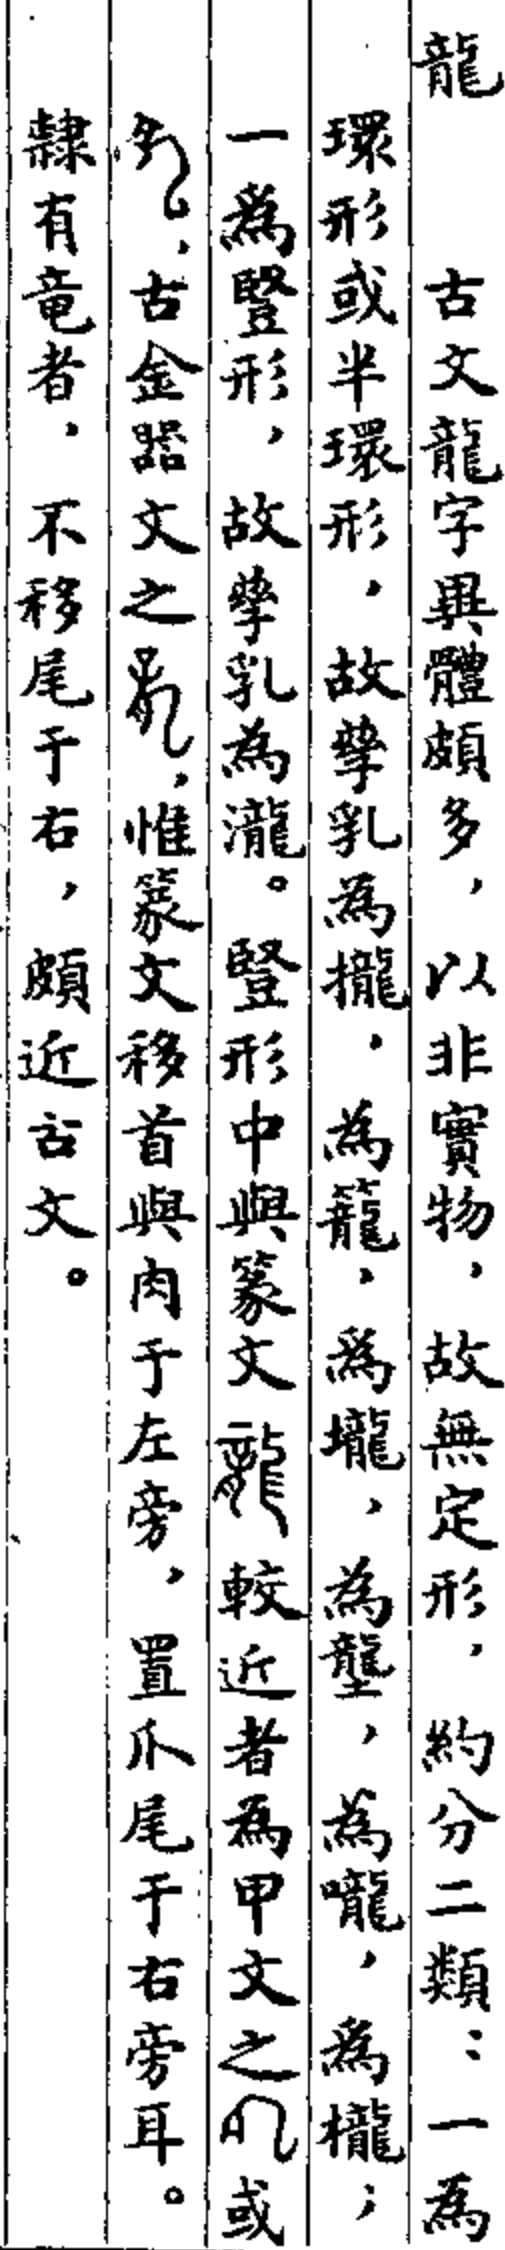 龍　古文龍字異體頗多，以非實物，故無定形，約分二類：一為
環形或半環形，故孳乳為攏，為籠，為壠，為壟，為嚨，為櫳；
一為豎形，故孳乳為瀧。豎形中與篆文較近者為甲文之或
，古金器文之，惟篆文移首與肉于左旁，置爪尾于右旁耳。
隸有竜者，不移尾于右，頗近古文。